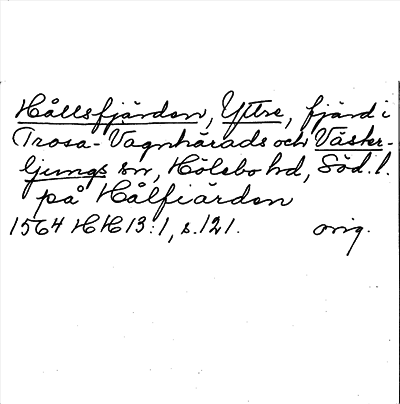 Hållsfjärden, Yttre, fjärd i
Trosa-Vagnhärads och Väster-
ljungs sn, Hölebo hd, Söd. l.
på Hålfiärden
1564 HH 13:1, s. 121. orig.